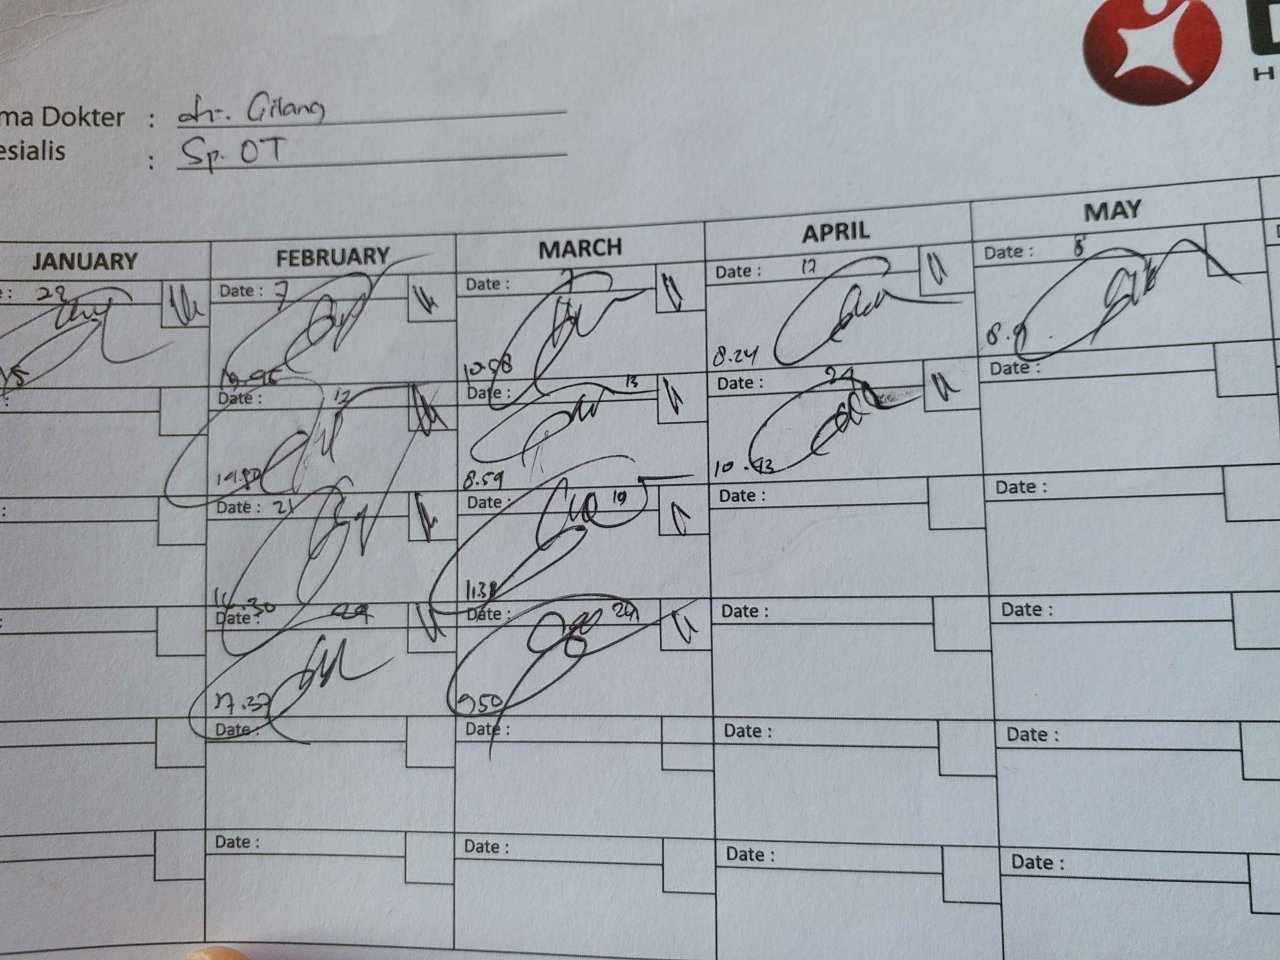 ma Dokter : dr. Gilang
esialis : Sp. OT
H
JANUARY FEBRUARY MARCH APRIL MAY
: 29 Date : 7 Date : 7 Date : 12 Date : 8
10.58 8.24 8.9
: Date : 12 Date : 13 Date : 29 Date :
8.59 10.43
: Date : 21 Date : 19 Date : Date :
16.30 11.38
: Date : 29 Date : 24 Date : Date :
17.37 9.50
Date : Date : Date : Date :
Date : Date : Date : Date :